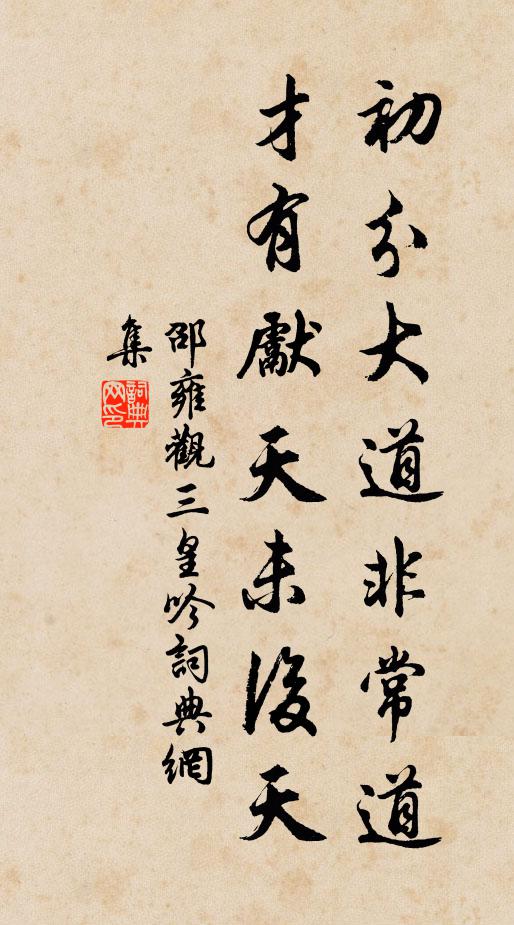 初分大道非常道
才有獻天未後天
邵雍觀三皇吟詞典網
集
詞典
网印